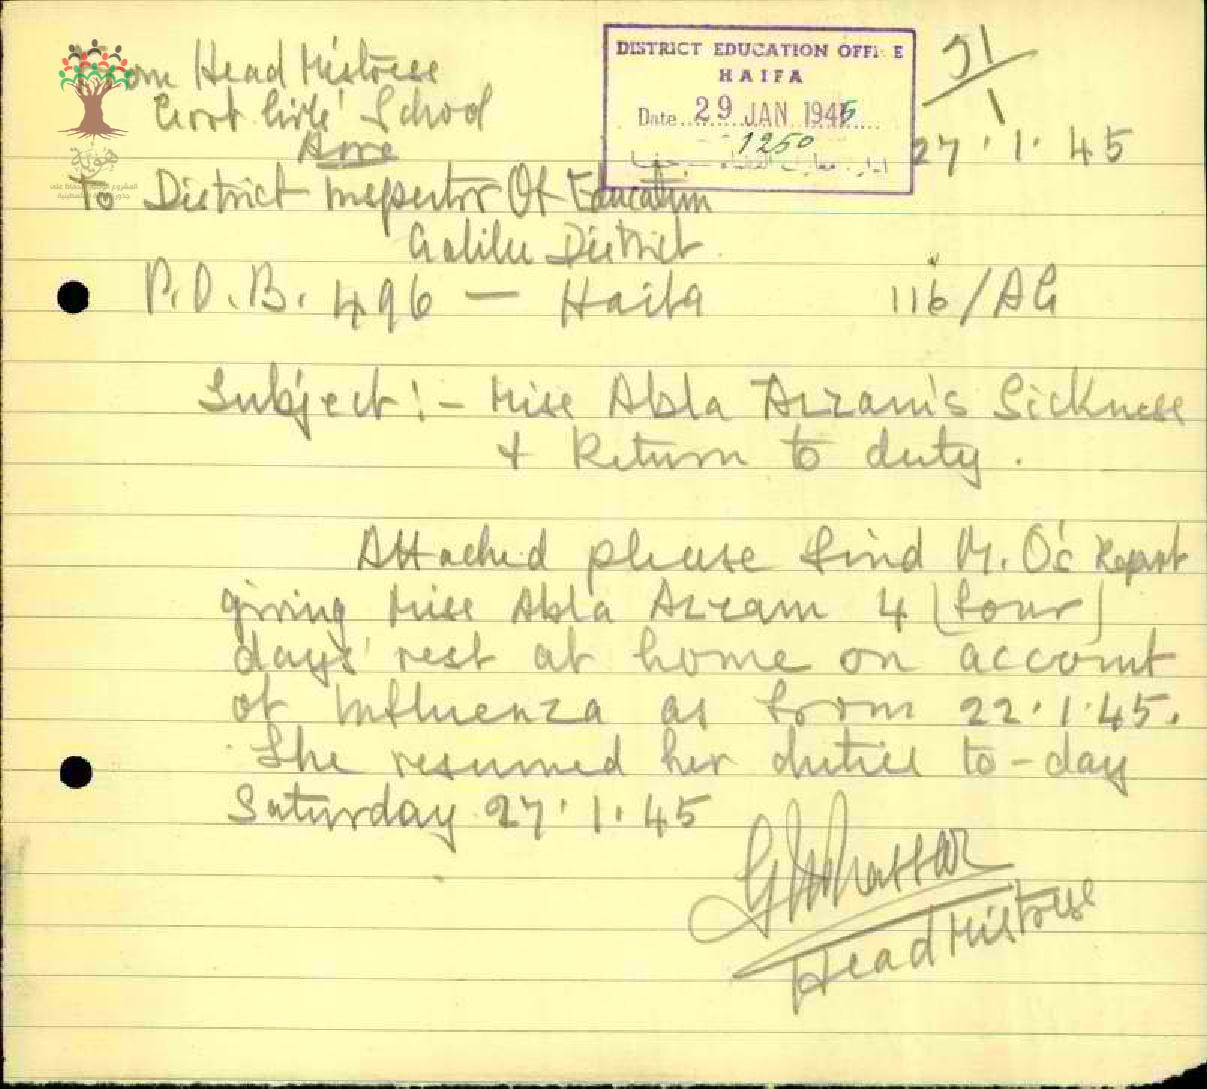 From Head Mistress
Govt Girls' School
Acre
DISTRICT EDUCATION OFFICE
HAIFA
Date 29 JAN 1945
1250
31/1
27.1.45
هوية
To District Inspector Of Education
Galilee District
P.O.B. 496 — Haifa 116/AG
Subject:- Miss Abla Azzam's Sickness
+ Return to duty.
Attached please find M.O's Report
giving Miss Abla Azzam 4 (four)
days' rest at home on account
of Influenza as from 22.1.45.
She resumed her duties to-day
Saturday 27.1.45
Head Mistress